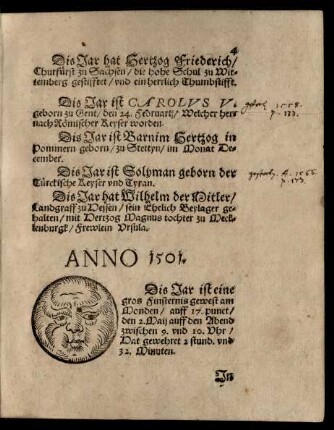 4
Dis Jar hat Hertzog Friederich/
Churfürst zu Sachsen/ die hohe Schul zu Wit-
temberg gestifftet/ vnd ein herrlich Thumbstifft.
Dis Jar ist CAROLVS V.
geborn zu Gent/ den 24. Februarij/ Welcher her-
nach Römischer Keyser worden.
Dis Jar ist Barnim Hertzog in
Pommern geborn/ zu Stettyn/ im Monat De-
cember.
Dis Jar ist Solyman geborn der
Türckische Keyser vnd Tyran.
Dis Jar hat Wilhelm der Mitler/
Landgraff zu Hessen/ sein Ehelich Beylager ge-
halten/ mit Hertzog Magnus tochter zu Meck-
lenburgk/ Frewlein Vrsula.
ANNO 1501.
Dis Jar ist eine
gros Finsternis gewest am
Monden/ auff 17. punct/
den 2. Maij auff den Abend
zwischen 9. vnd 10. Vhr/
Hat gewehret 2 stund. vnd
32. Minuten.